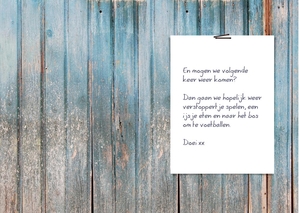 En mogen we volgende
keer weer komen?
Dan gaan we hopelijk weer
verstoppertje spelen, een
ijsje eten en naar het bos
om te voetballen.
Doei xx